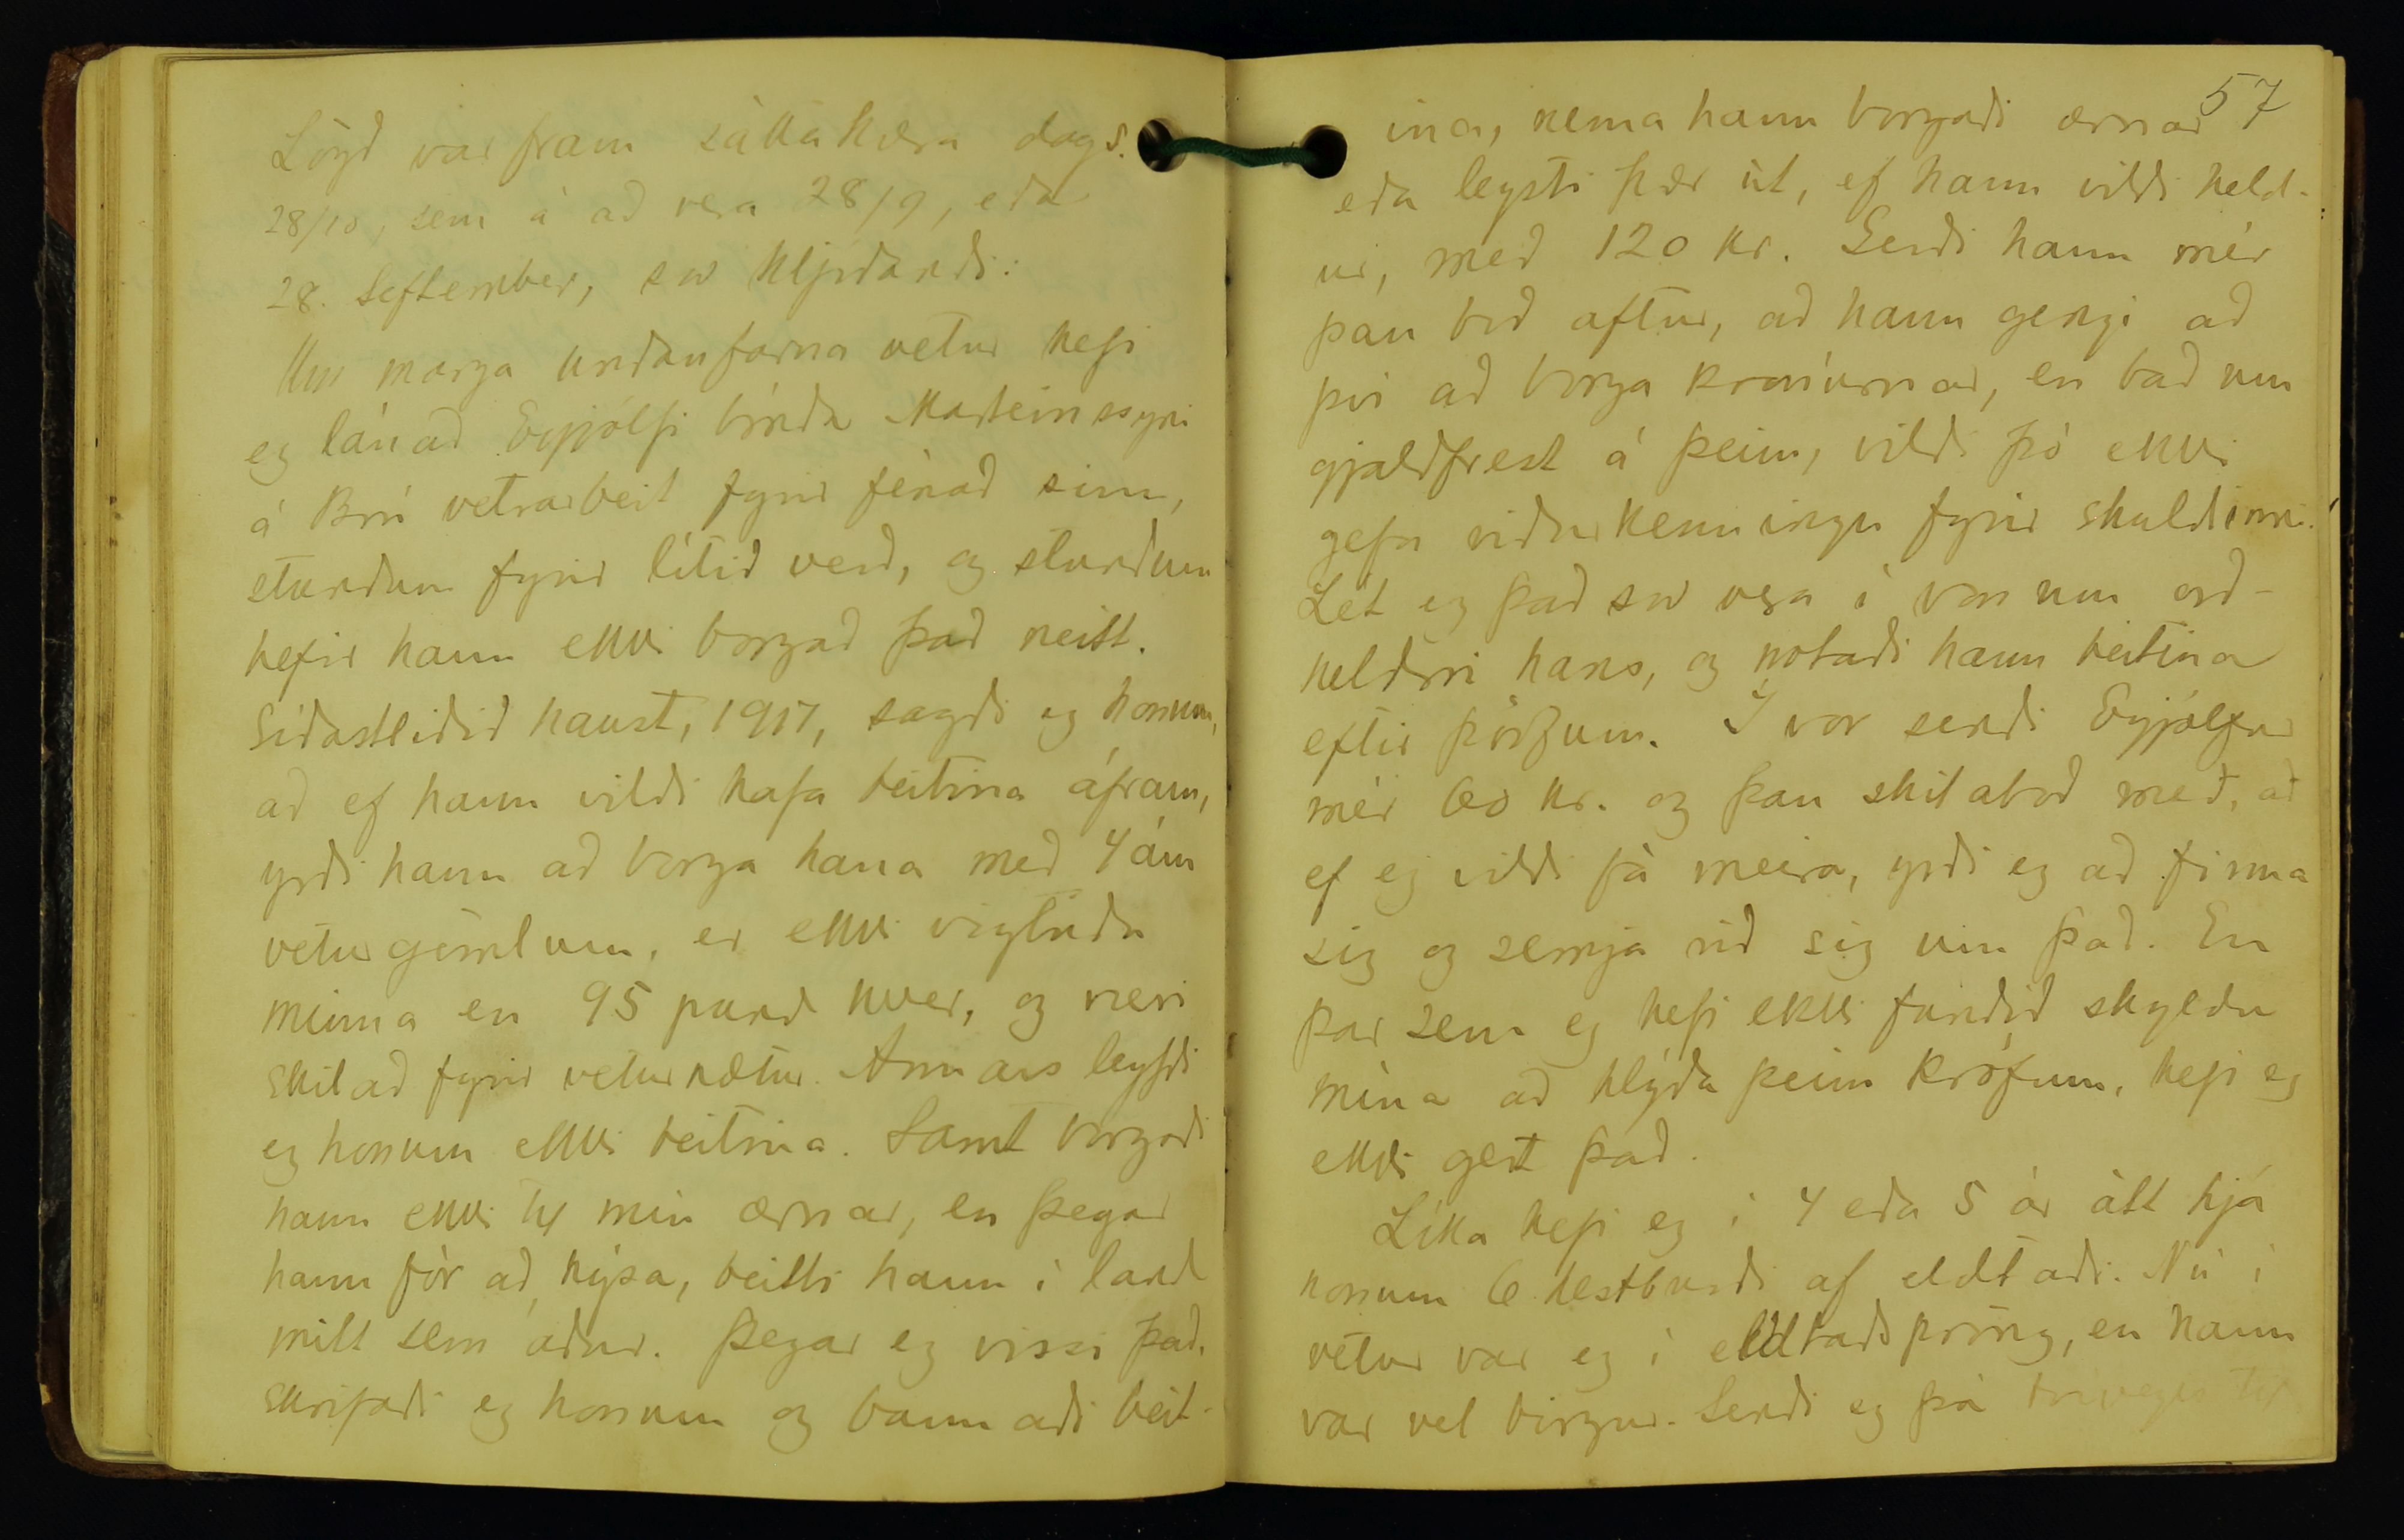 Lögð var fram sáttakæra dags.
28/10, sem á að vera 28/9, eða
28. September, svo hljóðandi:
Um marga undanfarna vetur hefi
eg lánað Eyjólfi bónda Marteinssyni
á Brú vetrarbeit fyrir fénað sinn,
stundum fyrir lítið verð, og stundum
hefir hann ekki borgað það neitt.
Síðastliðið haust, 1917, sagði eg honum,
að ef hann vildi hafa beitina áfram,
yrði hann að borga hana með 4 ám
veturgömlum, er ekki vigtuðu
minna en 95 pund hver, og væri
skilað fyrir veturnætur. Annars leyfði
eg honum ekki beitina. Samt borgaði
hann ekki til mín ærnar, en þegar
hann fór að hýsa, beitti hann í land
mitt sem áður. Þegar eg vissi það,
skrifaði eg honum og bannaði beit-
57
ina, nema hann borgaði ærnar
eða leysti þær út, ef hann vildi held-
ur, með 120 kr. Sendi hann mér
þau boð aftur, að hann gengi að
því að borga krónurnar, en bað um
gjaldfrest á þeim, vildi þó ekki
gefa viðurkenningu fyrir skuldinni.
Lét eg það svo vera í von um orð-
heldni hans, og notaði hann beitina
eftir þörfum. Í vor sendi Eyjólfur
mér 60 kr. og þau skilaboð með, að
ef eg vildi fá meira, yrði eg að finna
sig og semja við sig um það. En
þar sem eg hefi ekki fundið skyldu
mína að hlýða þeim kröfum, hefi eg
ekki gert það.
Líka hefi eg í 4 eða 5 ár átt hjá
honum 6 hestburði af eldtaði. Nú í
vetur var eg í eldtaðsþröng, en hann
var vel birgur. Sendi eg þá tvívegis til